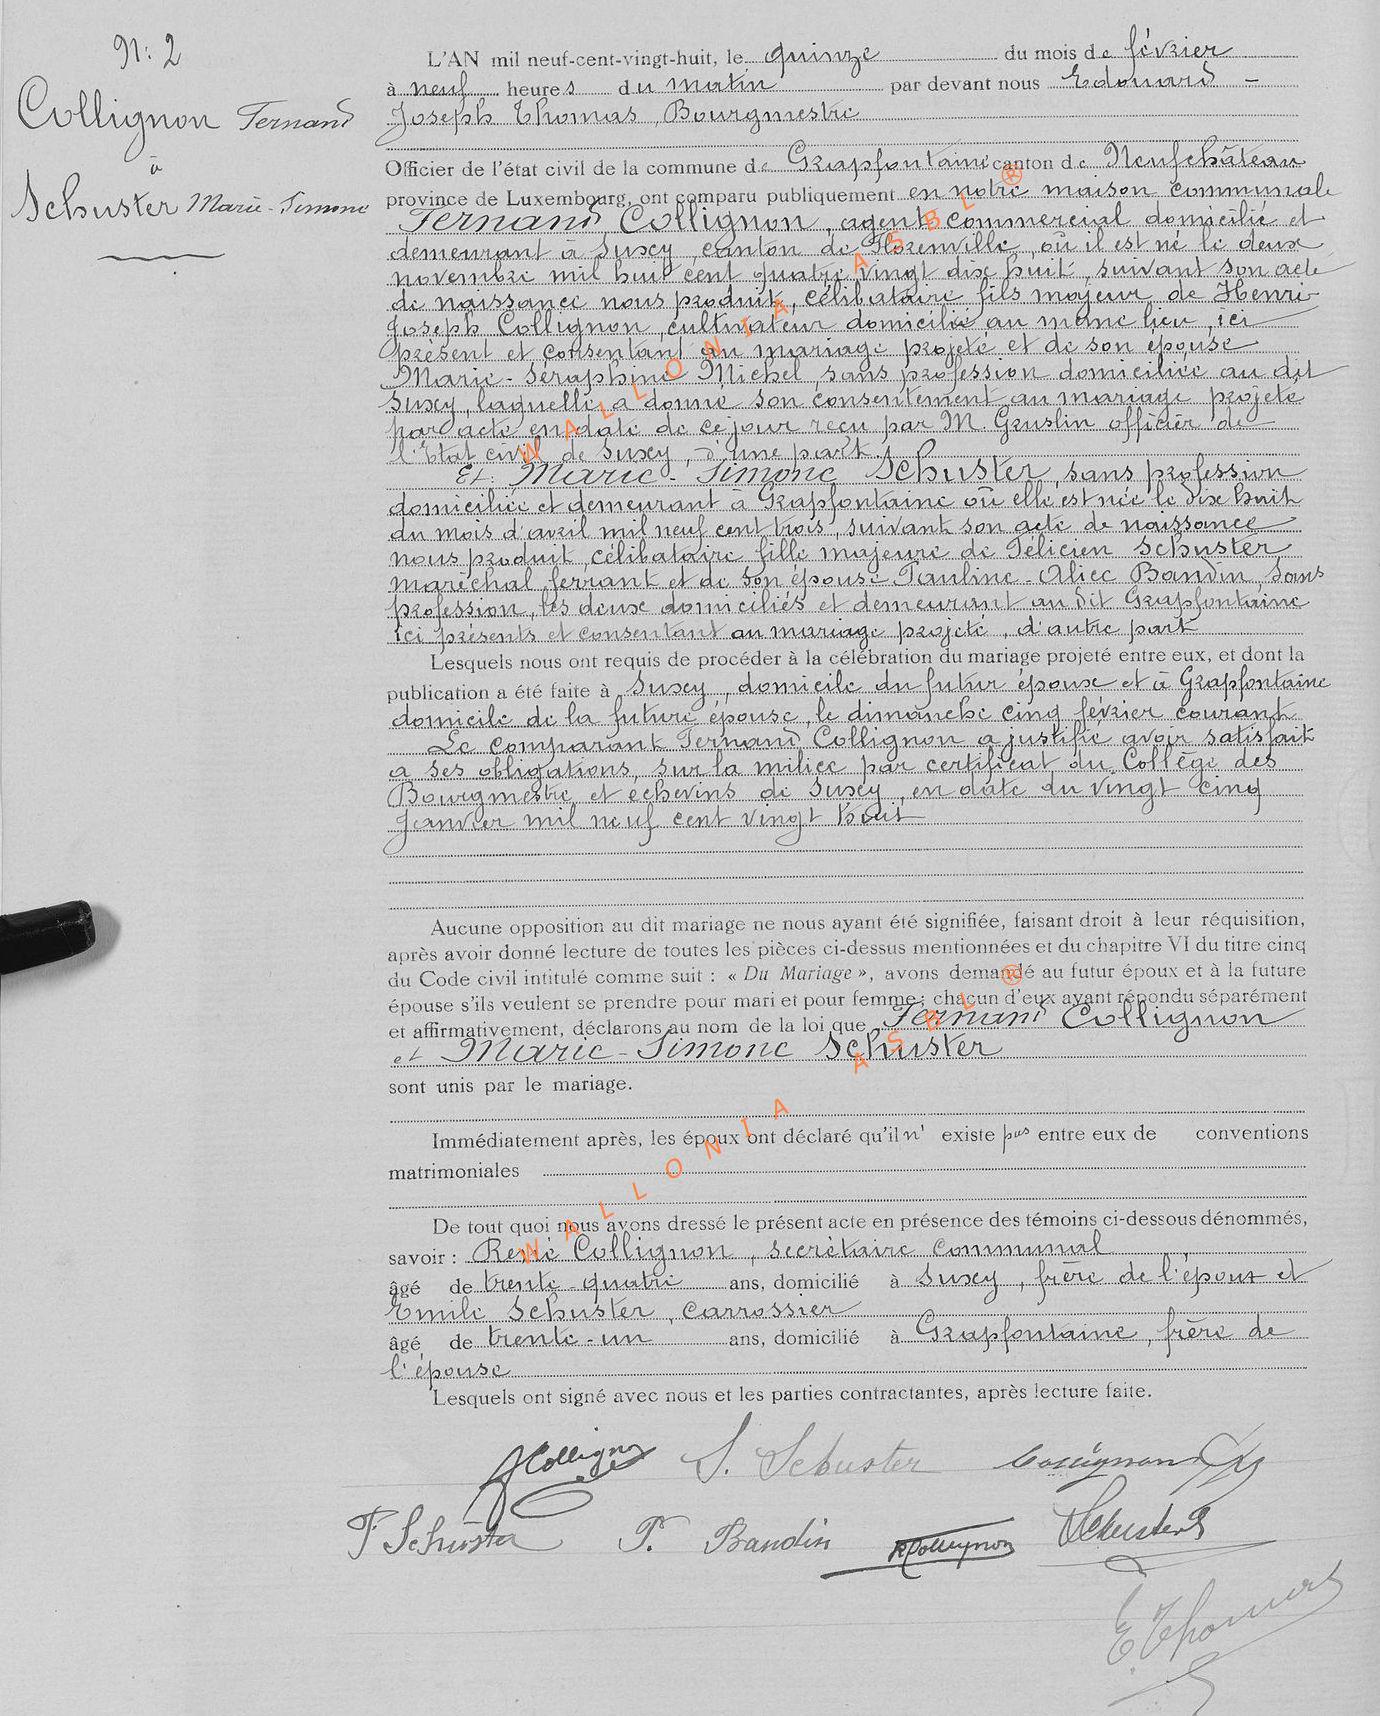 N: 2
Collignon Fernand
à
Schuster Marie-Simone
L'AN mil neuf-cent-vingt-huit, le quinze du mois de février
à neuf heures du matin par devant nous Edouard -
Joseph Thomas, Bourgmestre
Officier de l'état civil de la commune de Grapfontaine canton de Neufchâteau
province de Luxembourg, ont comparu publiquement en notre maison communale
Fernand Collignon, agent commercial domicilié et
demeurant à Suxy, canton de Florenville, où il est né le deux
novembre mil huit cent quatre vingt dix huit, suivant son acte
de naissance nous produit, célibataire fils majeur de Henri
Joseph Collignon, cultivateur domicilié au même lieu, ici
présent et consentant au mariage projeté et de son épouse
Marie-Séraphine Michel, sans profession domiciliée au dit
Suxy, laquelle a donné son consentement au mariage projeté
par acte en date de ce jour reçu par M. officier de
l'Etat civil de Suxy, d'une part.
Et Marie-Simone Schuster, sans profession
domiciliée et demeurant à Grapfontaine où elle est née le dix huit
du mois d'avril mil neuf cent trois, suivant son acte de naissance
nous produit, célibataire fille majeure de Félicien Schuster,
maréchal ferrant et de son épouse Pauline-Alice Baudin, sans
profession, les deux domiciliés et demeurant au dit Grapfontaine
ici présents et consentant au mariage projeté, d'autre part
Lesquels nous ont requis de procéder à la célébration du mariage projeté entre eux, et dont la
publication a été faite à Suxy, domicile du futur époux et à Grapfontaine
domicile de la future épouse, le dimanche cinq février courant
Le comparant Fernand Collignon a justifié avoir satisfait
a ses obligations, sur la milice par certificat du Collège des
Bourgmestre et echevins de Suxy, en date du vingt cinq
Janvier mil neuf cent vingt huit
Aucune opposition au dit mariage ne nous ayant été signifiée, faisant droit à leur réquisition,
après avoir donné lecture de toutes les pièces ci-dessus mentionnées et du chapitre VI du titre cinq
du Code civil intitulé comme suit : « Du Mariage », avons demandé au futur époux et à la future
épouse s'ils veulent se prendre pour mari et pour femme ; chacun d'eux ayant répondu séparément
et affirmativement, déclarons au nom de la loi que Fernand Collignon
et Marie-Simone Schuster
sont unis par le mariage.
Immédiatement après, les époux ont déclaré qu'il n' existe pas entre eux de conventions
matrimoniales
De tout quoi nous avons dressé le présent acte en présence des témoins ci-dessous dénommés,
savoir : René Collignon, secrétaire communal
âgé de trente-quatre ans, domicilié à Suxy, frère de l'époux et
Emile Schuster, carrossier
âgé de trente-un ans, domicilié à Grapfontaine, frère de
l'épouse
Lesquels ont signé avec nous et les parties contractantes, après lecture faite.
Collignon S. Schuster Collignon
F Schuster P. Baudin R Collignon Schuster E
E Thomas
WALLONIA ASBL ®
WALLONIA ASBL ®